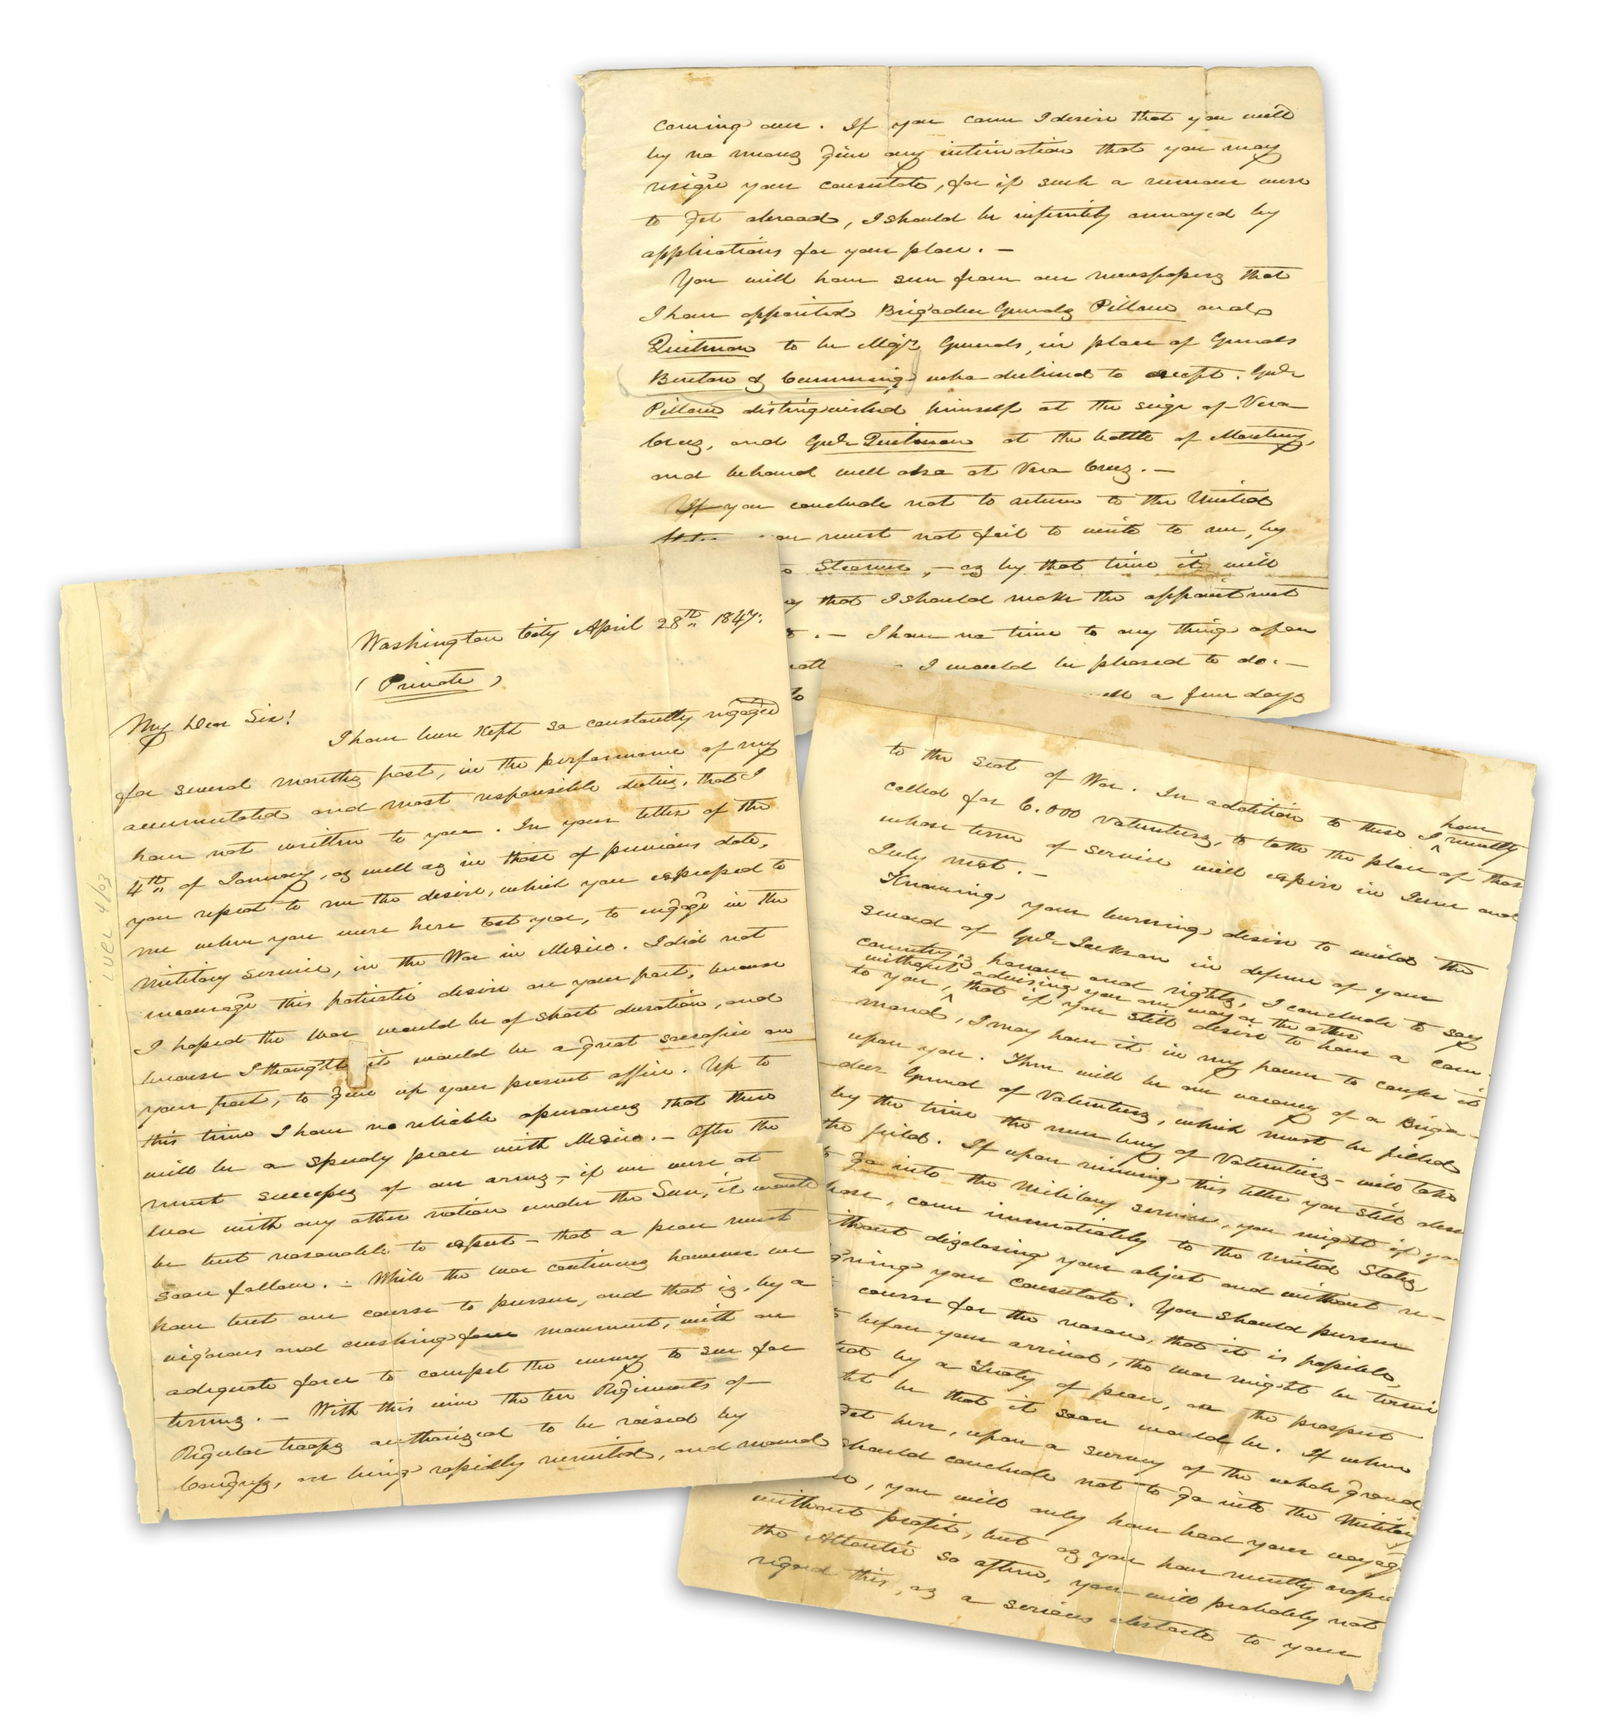 Washington City April 28th 1847.
(Private)
My Dear Sir!
I have been kept so constantly engaged
for several months past, in the performance of my
accumulated and most responsible duties, that I
have not written to you. In your letter of the
4th of January, as well as in those of previous date,
you repeat to me the desire, which you expressed to
me when you were here last year, to engage in the
Military service, in the War in Mexico. I did not
encourage this patriotic desire on your part, because
I hoped the War would be of short duration, and
because I thought it would be a great sacrifice on
your part, to give up your present office. Up to
this time I have no reliable assurances that there
will be a speedy peace with Mexico. - After the
much success of our arms, - if we were at
War with any other nation under the Sun, it would
be but reasonable to expect - that a peace must
soon follow. - While the war continues however we
have but one course to pursue, and that is, by a
vigorous and crushing movement, with an
adequate force to compel the enemy to sue for
terms. - With this view the ten Regiments of
Regular troops authorized to be raised by
Congress, are being rapidly recruited, and moved
to the Seat of War. In addition to these I have recently
called for 6.000 Volunteers, to take the place of those
whose term of service will expire in June and
July next. -
Knowing your burning desire to wield the
sword of Genl. Jackson in defence of your
country's honour and rights, I conclude to say
without advising you one way or the other
to you, that if you still desire to have a com-
mand, I may have it in my power to confer it
upon you. There will be one vacancy of a Briga-
dier General of Volunteers, which must be filled
by the time the new levy of Volunteers - will take
the field. If upon receiving this letter you still desire
to go into the Military service, you might if you
chose, come immediately to the United States,
without disclosing your object and without re-
signing your Consulate. You should pursue
course for the reason, that it is possible,
before your arrival, the war might be termi
by a Treaty of peace, or the prospect
be that it soon would be. If when
get here, upon a survey of the whole ground
should conclude not to go into the Military
you will only have had your voyage
without profit, but as you have recently crossed
the Atlantic so often, you will probably not
regard this, as a serious obstacle to your
coming over. If you come I desire that you will
by no means give any intimation that you may
resign your consulate, for if such a rumour were
to get abroad, I should be infinitely annoyed by
applications for your place. -
You will have seen from our newspapers that
I have appointed Brigadier Generals Pillow and
Quitman to be Majr. Generals, in place of Generals
Benton & Cumming, who declined to accept. Genl.
Pillow distinguished himself at the siege of Vera
Cruz, and Genl. Quitman at the battle of Monterey,
and behaved well also at Vera Cruz. -
If you conclude not to return to the United
States you must not fail to write to me, by
Steamer, - as by that time it will
that I should make the appointment
- I have no time to any thing upon
I would be pleased to do. -
a few days